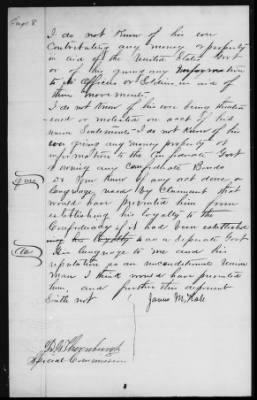 Page 8
I do not Know of his ever
Contributing any money or property
in aid of the United States Govt
or of his giving any information
to its officers or Soldiers in aid of
their movements.
I do not Know of his being threat
ened or molested on acct of his
union Sentiments I do not Know of his
ever giving any money property or
information to the Confederate Govt
or owning any Confederate Bonds
Ques
Do you Know of any act done or
language used by Claimant that
would have prevented him from
establishing his loyalty to the
Confederacy if it had been established
as a seperate Govt
Ans
His language to me and his
reputation as an unconditional Union
Man I think would have prevented
him, and further this deponent
Saith not
James M. Hale
Special Commissioner